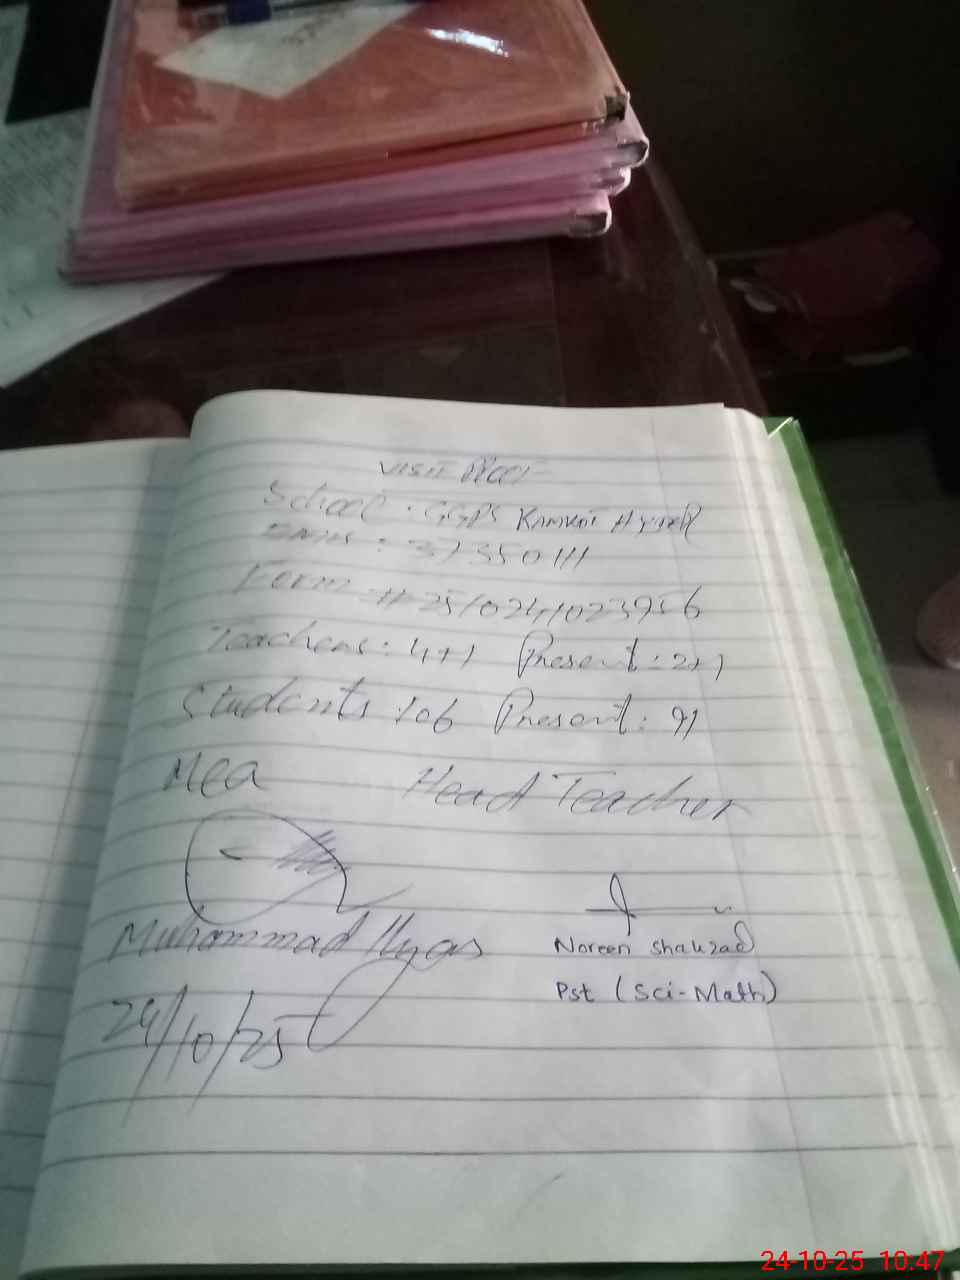 VISIT Proof
School: GGPS
EMIS: 37350111
Form # 2510241023956
Teachers: 4+1 Present: 2+1
Students: 106 Present: 91
Mea Head Teacher
Muhammad Ilyas
Noreen Shahzad
Pst (Sci-Math)
24/10/25
24-10-25 10:47